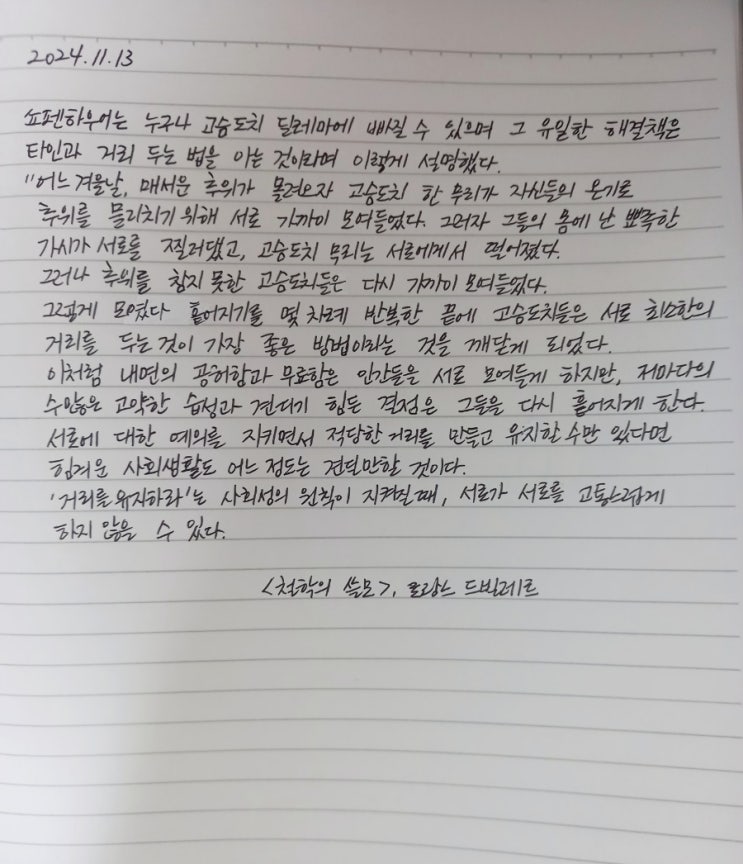 2024.11.13
쇼펜하우어는 누구나 고슴도치 딜레마에 빠질 수 있으며 그 유일한 해결책은
타인과 거리 두는 법을 아는 것이라며 이렇게 설명했다.
"어느 겨울날, 매서운 추위가 몰려오자 고슴도치 한 무리가 자신들의 온기로
추위를 물리치기 위해 서로 가까이 모여들었다. 그러자 그들의 몸에 난 뾰족한
가시가 서로를 찔러댔고, 고슴도치 무리는 서로에게서 떨어졌다.
그러나 추위를 참지 못한 고슴도치들은 다시 가까이 모여들었다.
그렇게 모였다 흩어지기를 몇 차례 반복한 끝에 고슴도치들은 서로 최소한의
거리를 두는 것이 가장 좋은 방법이라는 것을 깨닫게 되었다.
이처럼 내면의 공허함과 무료함은 인간들을 서로 모여들게 하지만, 저마다의
수많은 고약한 습성과 견디기 힘든 결점은 그들을 다시 흩어지게 한다.
서로에 대한 예의를 지키면서 적당한 거리를 만들고 유지할 수만 있다면
힘겨운 사회생활도 어느 정도는 견딜만할 것이다.
'거리를 유지하라'는 사회성의 원칙이 지켜질 때, 서로가 서로를 고통스럽게
하지 않을 수 있다.
<철학의 쓸모>, 로랑스 드빌레르